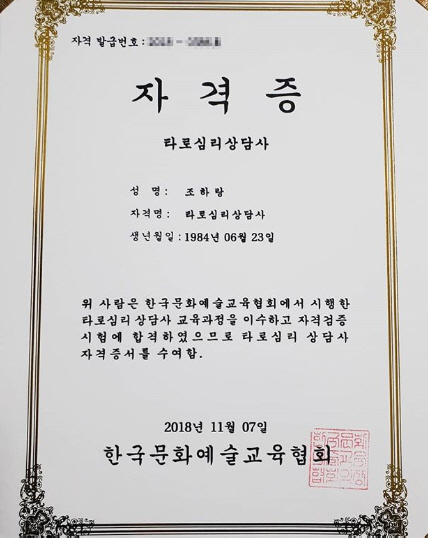 자격 발급번호 :
자 격 증
타로심리상담사
성 명 : 조하랑
자격명 : 타로심리상담사
생년월일 : 1984년 06월 23일
위 사람은 한국문화예술교육협회에서 시행한
타로심리상담사 교육과정을 이수하고 자격검증
시험에 합격하였으므로 타로심리 상담사
자격증서를 수여함.
2018년 11월 07일
한국문화예술교육협회